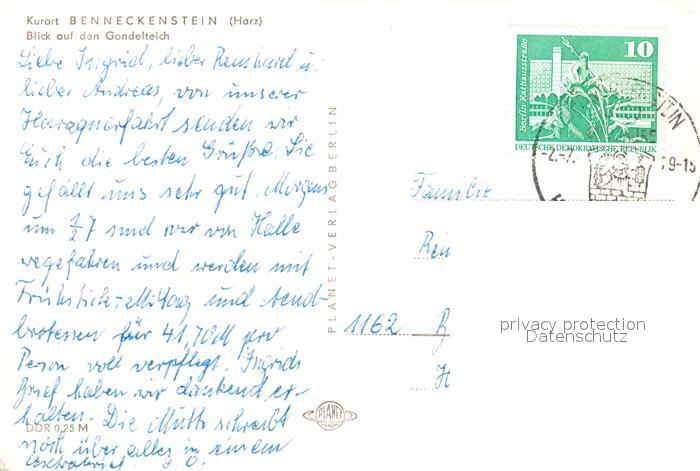 Kurort BENNECKENSTEIN (Harz)
Blick auf den Gondelteich
Liebe Ingrid, lieber Reinhard u.
lieber Andreas, von unserer
Harzquerfahrt senden wir
Euch die besten Grüße. Sie
gefällt uns sehr gut. Morgens
um ½ 7 sind wir von Halle
wegefahren und werden mit
Frühstück-Mittag und Abend-
brotessen für 41,70 M pro
Person voll verpflegt. Ingrids
Brief haben wir dankend er-
halten. Die Mutti schreibt
noch über alles in einem
DDR 0,25 M
PLANET-VERLAG BERLIN
PLANET
10
Berlin-Rathausstraße
DEUTSCHE DEMOKRATISCHE REPUBLIK
Familie
1162
privacy protection
Datenschutz